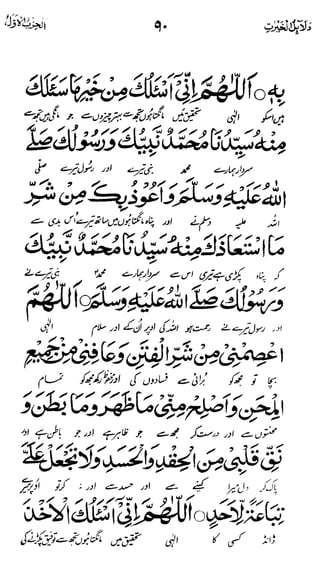 دلائل الخیرت ۹۰ الحزب الاول
بِهٖ ○ اَللّٰهُمَّ اِنِّیْ اَسْئَلُكَ مِنْ خَیْرِ مَا سَئَلَكَ
الٰہی تحقیق میں مانگتا ہوں تجھ سے بہتر چیزوں سے جو مانگیں تجھ سے
مِنْهُ سَیِّدُنَا مُحَمَّدٌ نَبِیُّكَ وَرَسُوْلُكَ صَلَّے
سردار ہمارے محمد نبی تیرے اور رسول تیرے صلی
اللهُ عَلَیْهِ وَسَلَّمَ وَاَعُوْذُ بِكَ مِنْ شَرِّ
اللہ علیہ وسلم نے اور پناہ مانگتا ہوں میں ساتھ تیرے اُس بدی سے
مَا اسْتَعَاذَكَ مِنْهُ سَیِّدُنَا مُحَمَّدٌ نَبِیُّكَ
کہ پناہ پکڑی ہے تیری اس سے سردار ہمارے محمد نبی تیرے نے
وَرَسُوْلُكَ صَلَّے اللهُ عَلَیْهِ وَسَلَّمَ ○ اَللّٰهُمَّ
اور رسول تیرے نے رحمت ہو اللہ کی اوپر اُن کے اور سلام الٰہی
اعْصِمْنِیْ مِنْ شَرِّ الْفِتَنِ وَعَافِنِیْ مِنْ جَمِیْعِ
بچا تو مجھ کو بُرائی سے فسادوں کی اور محفوظ رکھ مجھ کو تمام
الْمِحَنِ وَاَصْلِحْ مِنِّیْ مَا ظَهَرَ وَمَا بَطَنَ وَ
محنتوں سے اور درست کر مجھ سے جو ظاہر ہے اور جو باطن ہے اور
نَقِّ قَلْبِیْ مِنَ الْحِقْدِ وَالْحَسَدِ وَلَا تَجْعَلْ عَلَیَّ
پاک کر دل میرا کینے سے اور حسد سے اور نہ کر تو اوپر میرے
تِبَاعَةً لِاَحَدٍ ○ اَللّٰهُمَّ اِنِّیْ اَسْئَلُكَ الْاَخْذَ
کسی کا الٰہی تحقیق میں مانگتا ہوں تجھ سے توفیق پکڑنے کی